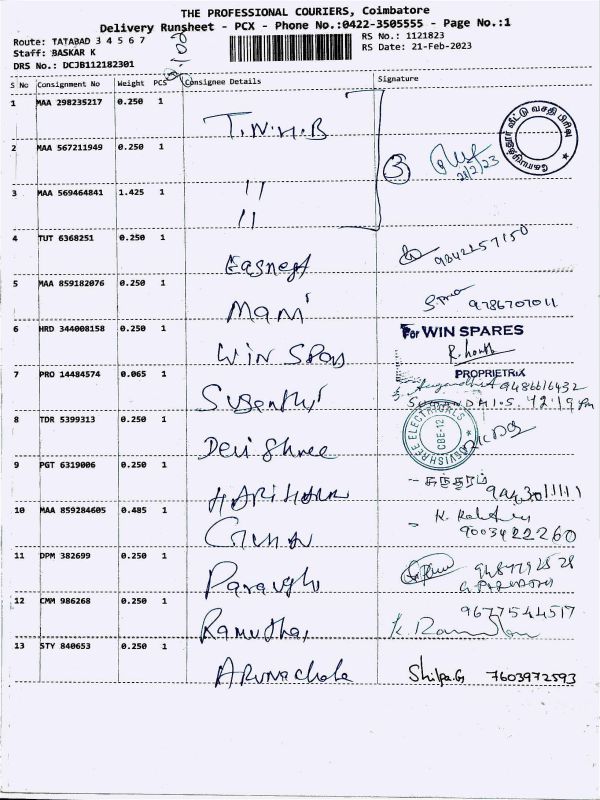 THE PROFESSIONAL COURIERS, Coimbatore
Delivery Runsheet - PCX - Phone No.:0422-3505555 - Page No.:1
Route: TATABAD 3 4 5 6 7
RS No.: 1121823
Staff: BASKAR K
RS Date: 21-Feb-2023
DRS No.: DCJB112182301
S No Consignment No Weight PCS Consignee Details Signature
1 MAA 298235217 0.250 1 T.N.H.B
கோயமுத்தூர் வீட்டு வசதி பிரிவு
2 MAA 567211949 0.250 1 "
3 21/2/23
3 MAA 569464841 1.425 1 "
4 TUT 6368251 0.250 1 9842257150
5 MAA 859182076 0.250 1 Mani 9786707011
6 HRD 344008158 0.250 1 WIN
For WIN SPARES
PROPRIETRIX
7 PRO 14484574 0.065 1 Suganthi 9486616432
SUGANDHI.S. 12.19 pm
8 TDR 5399313 0.250 1 Devi Shree
DEVISHREE ELECTRICALS CBE-12
9 PGT 6319006 0.250 1 9443011111
10 MAA 859284605 0.485 1 9003422260
11 DPM 382699 0.250 1
12 CMM 986268 0.250 1 9677544517
13 STY 840653 0.250 1 Arunachala Shilpa.G 7603972593